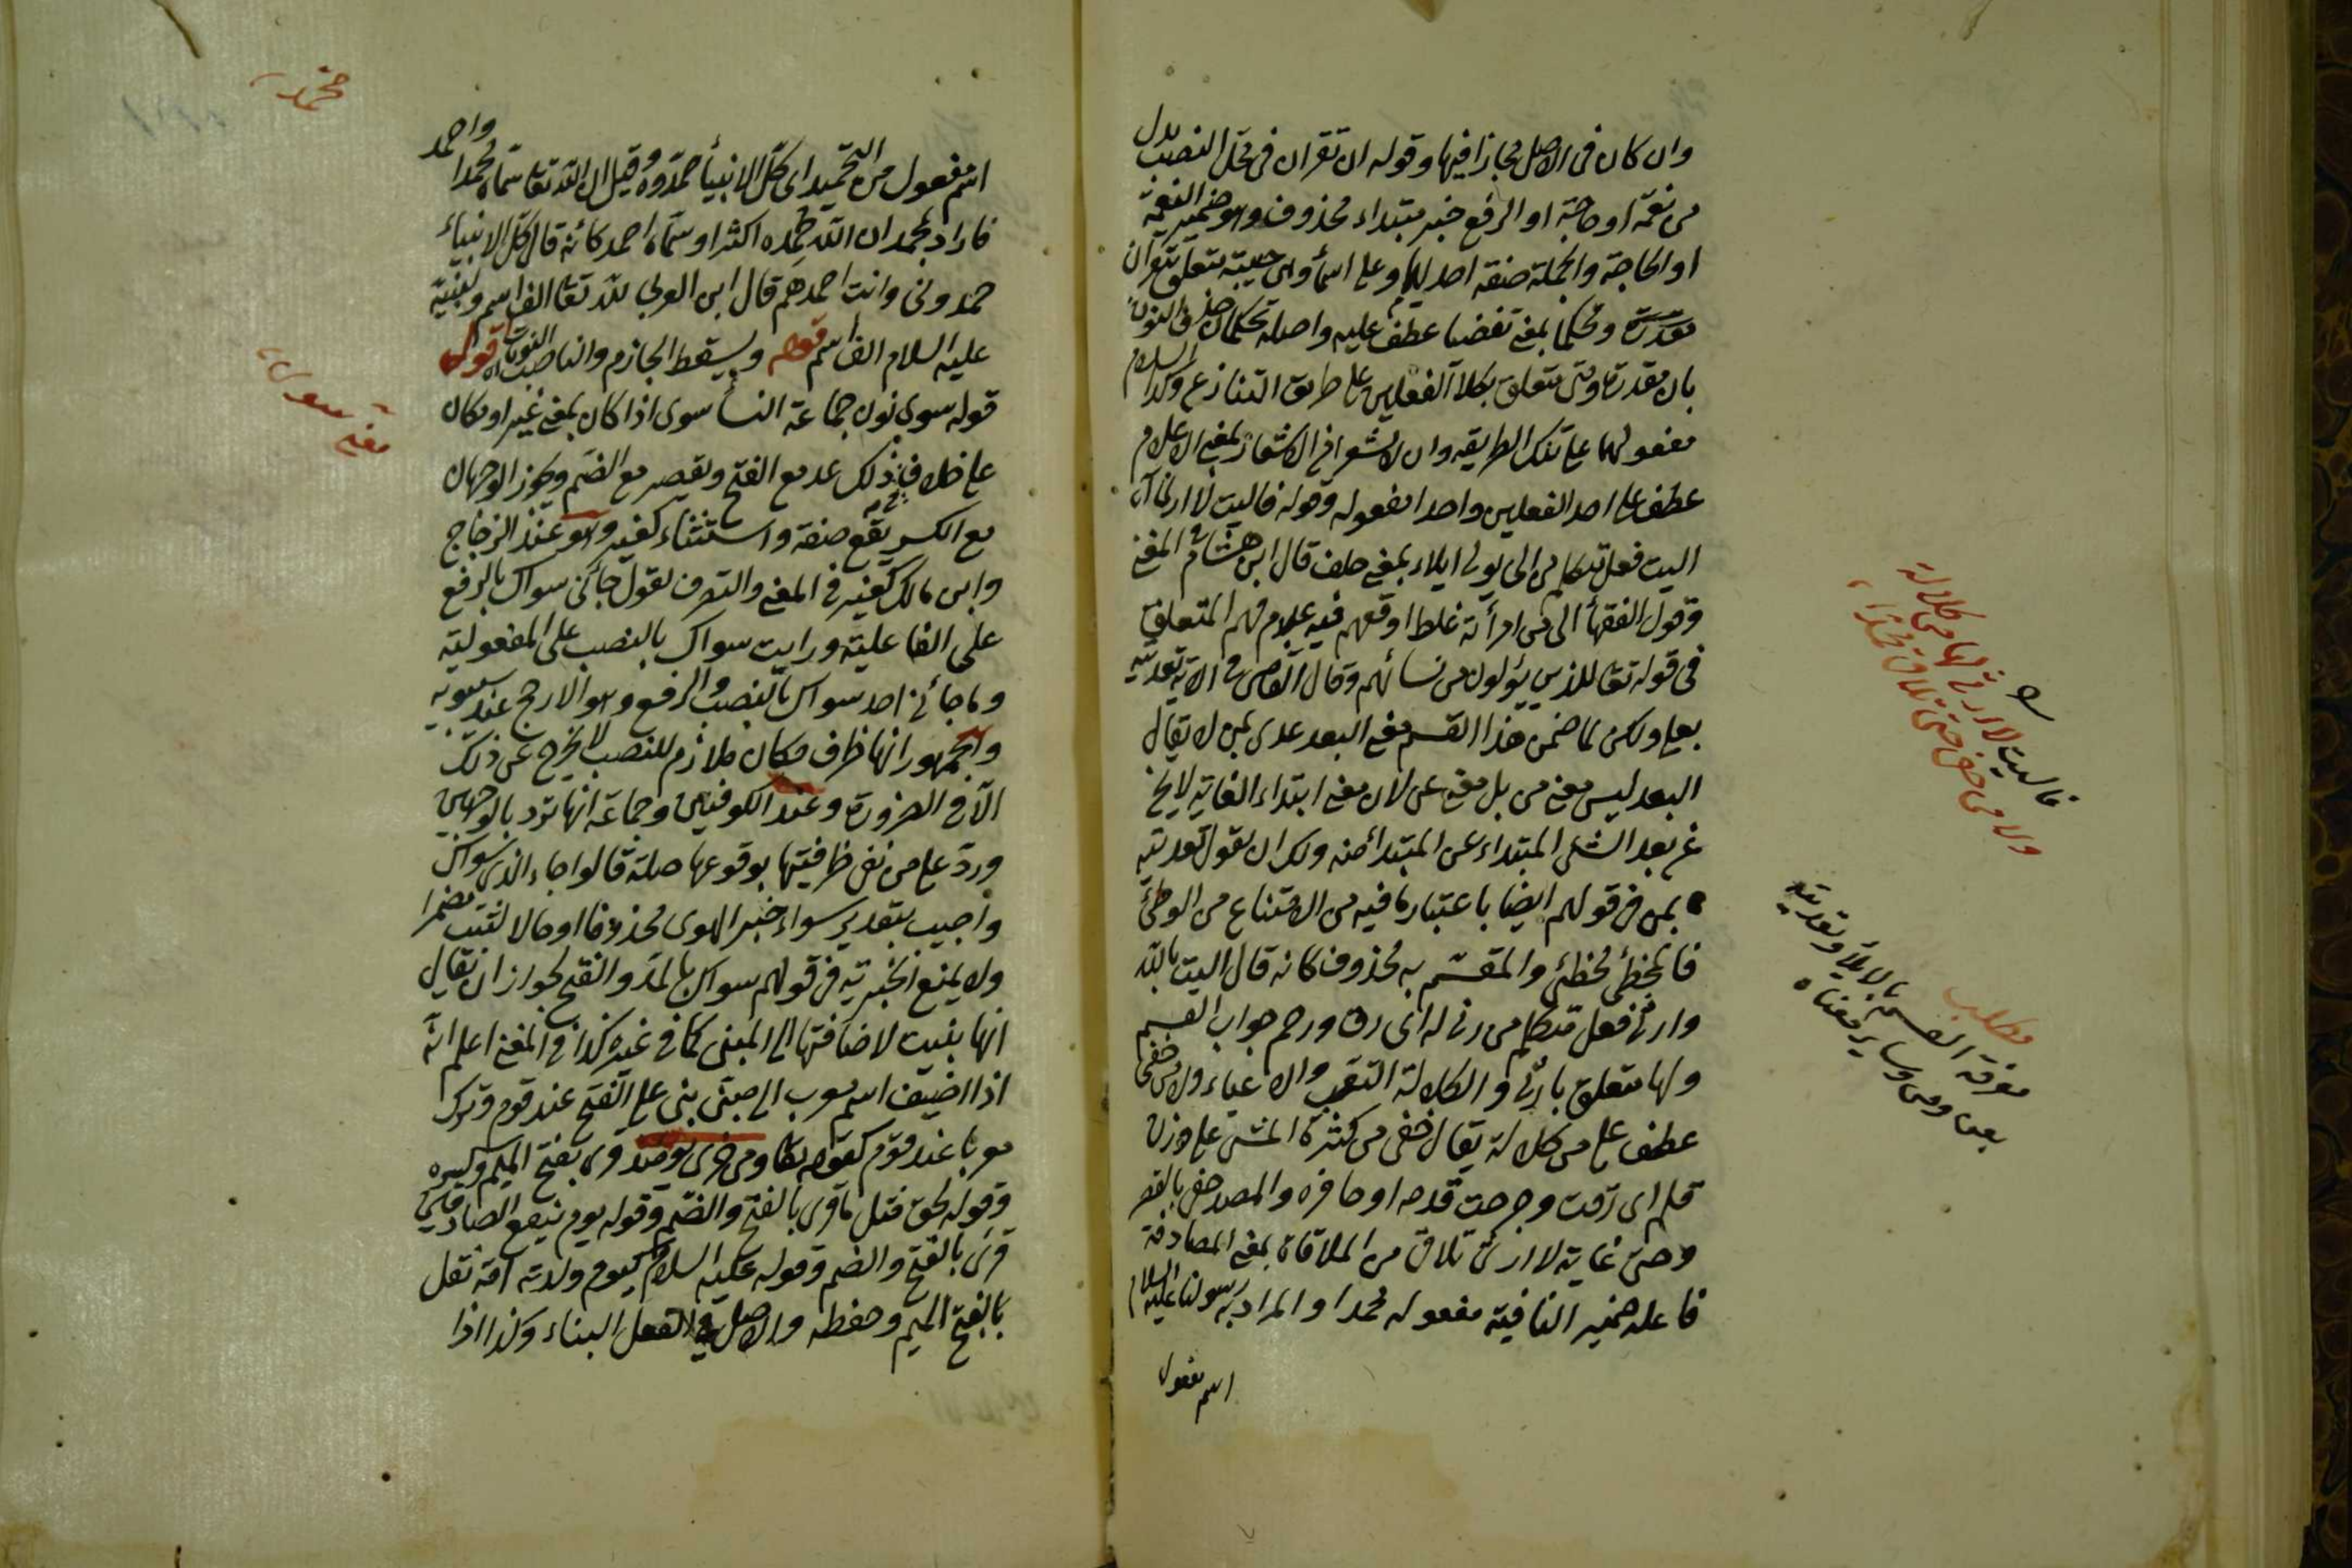 وان كان فى الاصل مجازا فيها وقوله ان تقران فى محل النصب بدل
من نعمة او حاجة او الرفع خبر مبتداء محذوف وهو ضمير النعمة
او الحاجة والجملة صفة احديهما وعلى اسماء وهى حبيبته متعلق بتقران
مقدرة وتحملا بمعنى تقضيا عطف عليه واصله تحملان حذف النون
بان مقدرة ومنى متعلق بكلا الفعلين على طريق التنازع وكذا السلام
مفعولهما على تلك الطريقه وان لا تشعرا فى الاشعار بمعنى الاعلام
عطف على احد الفعلين واحدا مفعوله وقوله فاليت لا ارثى آه
اليت فعل متكلم من الى يولى ايلاء بمعنى حلف قال ابن هشام فى المغنى
وقول الفقهأ الى من امرأته غلط اوقعهم فيه عدم فهم المتعلق
فى قوله تعا للذين يؤلون من نسائهم وقال القاضى فى الاية تعديته
بعلى ولكن لما ضمن هذا القسم معنى البعد عدى بمن لا يقال
البعد ليس معنى من بل معنى عن لان معنى ابتداء الغاية لا يخ
عن بعد الشئ المبتداء عن المبتدأ منه ولك ان تقول تعديته
بمن فى قولهم ايضا باعتبار ما فيه من الامتناع من الوطئ
فالمخطئ مخطئ والمقسم به محذوف كانه قال اليت بالله
وارثى فعل متكلم من رثى له اى رق ورحم جواب القسم
ولها متعلق بارثى والكلالة التعب والاعياء ولا من حفى
عطف على من كلالة يقال حفى من كثرة المشى على وزن
علم اى رقت وجرحت قدمه او حافره والمصدر حفى بالقصر
وحتى غاية لا ارثى تلاقى من الملاقاة بمعنى المصادفة
فاعله ضمير الناقية مفعوله محمدا والمراد به رسولنا عليه السلام
اسم مفعول
فاليت لا ارثى لها من كلالة
ولا من حفى حتى تلاقى محمدا
مطلب
معرفة القسم بالايلاء وتعديته
بعن ومن وساير معناه
اسم مفعول من التحميد اى كل الانبيأ حمدوه وقيل ان الله تعا سماه محمدا واحمد
فاراد بمحمد ان الله حمده اكثر او سماه احمد كانه قال كل الانبياء
حمدونى وانت احمدهم قال ابن العربى لله تعا الف اسم ولنبيه
عليه السلام الف اسم قوله ويسقط الجازم والناصب النونات قوله
قوله سوى نون جماعة النسأ سوى اذا كان بمعنى غير او مكان
على خلاف فى ذلك يمد مع الفتح ويقصر مع الضم ويجوز الوجهان
مع الكسر يقع صفة واستثناء كغير وهو عند الزجاج
وابن مالك كغير فى المعنى والتصرف تقول جأنى سواك بالرفع
على الفاعلية ورايت سواك بالنصب على المفعولية
وما جأنى احد سواك بالنصب والرفع وهو الارجح عند سيبويه
والجمهور انها ظرف مكان ملازم للنصب لا يخرج عن ذلك
الا فى الضرورة وعند الكوفيين وجماعة انها ترد بالوجهين
ورد على من نفى ظرفيتها بوقوعها صلة قالوا جاء الذى سواك
واجيب بتقدير سواء خبرا لهو محذوفا او حالا لثبت مضمرا
ولا يمنع الخبرية فى قولهم سواك بالمد والفتح لجواز ان يقال
انها بنيت لاضافتها الى المبنى كما فى غيره كذا فى المغنى اعلم انه
اذا اضيف اسم معرب الى مبنى بنى على الفتح عند قوم وترك
معربا عند قوم كقوله تعا ومن خزى يومئذ قرى بفتح الميم وكسره
وقوله لحق مثل ما قرى بالفتح والضم وقوله يوم ينفع الصادقين
قرى بالفتح والضم وقوله عليه السلام كيوم ولدته امه نقل
بالفتح الميم وخفضه والاصل فى الفعل البناء وكذا اذا
معنى سوى